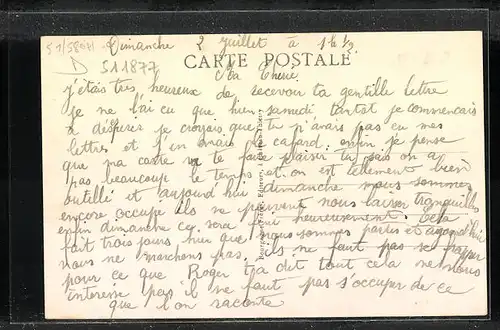 51/58071 Dimanche 2 juillet à 1h ½
D 511877 CARTE POSTALE
Ma Chérie.
j'étais très heureux de recevoir ta gentille lettre
je ne l'ai eu que hier samedi tantot je commencais
à désperer je croyais que tu n'avais pas eu mes
lettres et j'en avais le cafard. enfin je pense
que ma carte va te faire plaisir tu sais on a
pas beaucoup le temps et on est tellement bien
outillé et aujourd'hui dimanche nous sommes
encore occupé ils ne peuvent nous laisser tranquilles
enfin dimanche ce sera fini heureusement. Cela
fait trois jours hier que nous sommes partis et
nous ne marchons pas. ils ne faut pas se frapper
pour ce que Roger t'a dit tout cela ne nous
interesse pas il ne faut pas s'occuper de ce
que l'on raconte